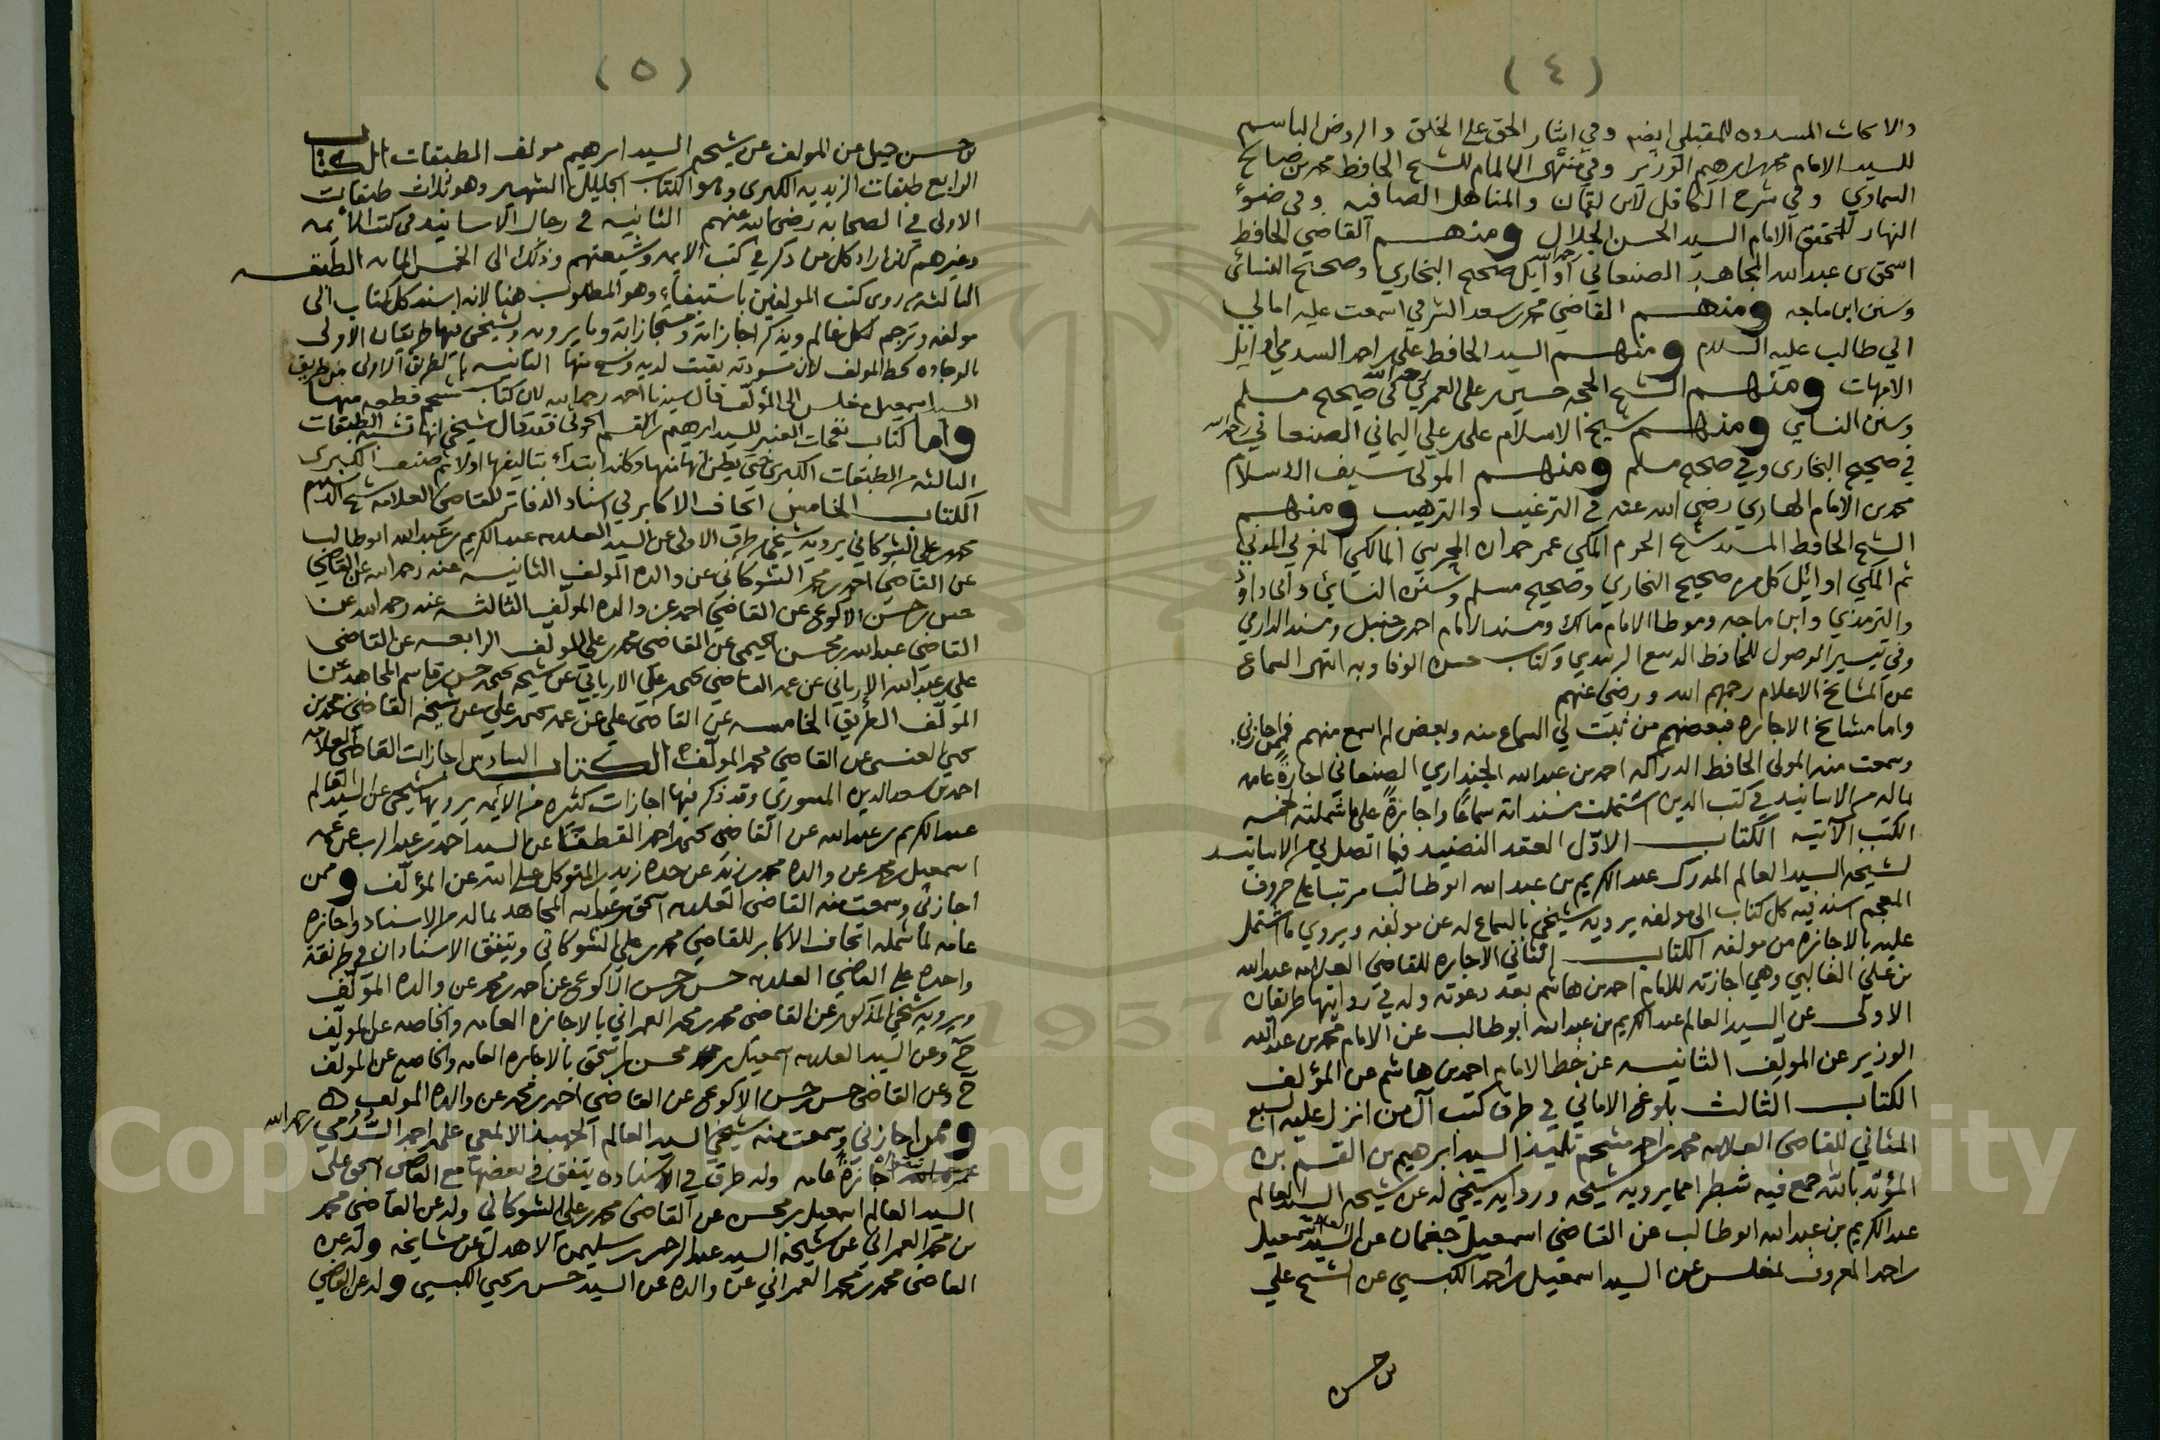 (٤)
والابحاث المسدده للمقبلي ايضا وفي ايثار الحق على الخلق والروض الباسم
للسيد الامام محمد بن ابرهيم الوزير وفي منتهى الالمام للشيخ الحافظ محمد بن صالح
السماوي وفي شرح الكافل لابن لقمان والمناهل الصافيه وفي ضوء
النهار للمحقق الامام السيد الحسن الجلال ومنهم القاضي الحافظ
اسحق بن عبدالله المجاهد الصنعاني رحمه الله أوايل صحيح البخاري وصحيح النسائي
وسنن ابن ماجه ومنهم القاضي محمد بن سعد الشرفي اسمعت عليه امالي
ابي طالب عليه السلام ومنهم السيد الحافظ علي بن احمد السدمي اوايل
الامهات ومنهم الشيخ الحجه حسين بن علي العمري رحمه الله في صحيح مسلم
وسنن النساي ومنهم شيخ الاسلام علي بن علي اليماني الصنعاني رحمه الله
في صحيح البخارى وفي صحيح مسلم ومنهم المولى سيف الاسلام
محمد بن الامام الهادي رضي الله عنه في الترغيب والترهيب ومنهم
الشيخ الحافظ المسند شيخ الحرم المكي عمر حمدان المحرسي المالكي المغربي المدني
ثم المكي اوائل كل من صحيح البخاري وصحيح مسلم وسنن النسائي وابي داوُد
والترمذي وابن ماجه وموطا الامام مالك ومسند الامام احمد بن حنبل ومسند الدارمي
وفي تيسير الوصول للحافظ الديبع الزبيدي وكتاب حسن الوفا وبه انتهى السماع
عن المشايخ الاعلام رحمهم الله ورضي عنهم
واما مشايخ الاجازه فبعضهم من ثبت لي السماع منه وبعض لم اسمع منهم فممن اجازني
وسمعت منه المولى الحافظ الدراكه احمد بن عبدالله الجنداري الصنعاني اجازةً عامه
لما له من الاسانيد في كتب الدين اشتملت مسنداته سماعًا واجازةً على ما شملته خمسه
الكتب الآتيه الكتاب الاوّل العقد النضيد فيما اتصل لي من الاسانيد
لشيخه السيد العالم المدرك عبد الكريم بن عبد الله ابو طالب مرتبا على حروف
المعجم اسند فيه كل كتاب الى مولفه يرويه شيخي بالسماع له عن مولفه ويروي ما اشتمل
عليه بالاجازه من مولفه الكتاب الثاني الاجازه للقاضي العلامه عبدالله
بن علي الغالبي وهي اجازته للامام احمد بن هاشم بعد دعوته وله في روايتها طريقان
الاولى عن السيد العالم عبد الكريم بن عبدالله ابو طالب عن الامام محمد بن عبدالله
الوزير عن المولف الثانيه عن خط الامام احمد بن هاشم عن المؤلف
الكتاب الثالث بلوغ الاماني في طرق كتب آل من انزل عليه السبع
المثاني للقاضي العلامه محمد بن احمد مشحم تلميذ السيد ابرهيم بن القسم بن
المؤيد بالله جمع فيه شطرا مما يرويه شيخه وروايه شيخي له عن شيخه السيد العالم
عبد الكريم بن عبدالله ابو طالب عن القاضي اسمعيل جغمان عن السيد العلامه اسمعيل
بن احمد المعروف بمغلس عن السيد اسمعيل بن احمد الكبسي عن الشيخ علي
بن حسن
(٥)
بن حسن جميل عن المولف عن شيخه السيد ابرهيم مولف الطبقات الكتاب
الرابع طبقات الزيديه الكبرى وهو الكتاب الجليل الشهير وهو ثلاث طبقات
الاولى في الصحابه رضي الله عنهم الثانيه في رجال الاسانيد في كتب الائمه
وغيرهم كذا اراد كل من ذكر في كتب الايمه وشيعتهم وذلك الى الخمس المائه الطبقه
الثالثه روى كتب المولفين باستيفاء وهو المطلوب هنا لانه اسند كل كتاب الى
مولفه وترجم لكل عالم ويذكر اجازاته ومستجازاته وما يرويه ولشيخي فيها طريقان الاولى
بالوجاده بخط المولف لان مسودته بقيت لديه ونسخ منها الثانيه بالطريق الاولى من طريق
السيد اسمعيل مغلس الى المؤلف قال سيدنا احمد رحمه الله لان كتاب مشحم قطعه منها
واما كتاب نفحات العنبر للسيد ابرهيم بن القسم الحوثي فقد قال شيخي انها تشبه الطبقات
الثالثه من الطبقات الكبرى حتى يظن انها منها وكان ابتداء بتاليفها اولا ثم صنف الكبرى
الكتاب الخامس اتحاف الاكابر في اسناد الدفاتر للقاضي العلامه شيخ الاسلام
محمد بن علي الشوكاني يرويه شيخي من طرق الاولى عن السيد العلامه عبد الكريم بن عبدالله ابو طالب
عن القاضي احمد بن محمد الشوكاني عن والده المولف الثانيه عنه رحمه الله عن القاضي
حسن بن حسن الاكوع عن القاضي احمد عن والده المولف الثالثه عنه رحمه الله عن
القاضي عبدالله بن محسن الحيمي عن القاضي محمد بن علي المولف الرابعه عن القاضي
علي بن عبدالله الارياني عن عمه القاضي يحيى بن علي الارياني عن شيخه يحيى حسن بن قاسم المجاهد عن
المولف الطريق الخامسه عن القاضي علي عن عمه يحيى بن علي عن شيخه القاضي محمد بن
يحيى العنسي عن القاضي محمد المولف الكتاب السادس اجازات القاضي العلامه
احمد بن سعد الدين المسوري وقد ذكر فيها اجازات كثيره من الايمه يرويها شيخي عن السيد العالم
عبد الكريم بن عبدالله عن القاضي يحيى بن احمد القطفا عن السيد احمد بن عبد الرب عن عمه
اسمعيل بن محمد عن والده محمد بن زيد عن جده زيد بن المتوكل على الله عن المؤلف وممن
اجازني وسمعت منه القاضي العلامه اسحق بن عبدالله المجاهد بما له من الاسناد واجازه
عامه لما شمله اتحاف الاكابر للقاضي محمد بن علي الشوكاني ويتفق الاسنادان في طريقة
واحده على القاضي العلامه حسن بن حسن الاكوع عن احمد بن محمد عن والده المؤلف
ويرويه شيخي المذكور عن القاضي محمد بن محمد العمراني بالاجازه العامه والخاصه عن المولف
ح وعن السيد العلامه اسمعيل بن محسن بن اسحق بالاجازه العامه والخاصه عن المولف
ح وعن القاضي حسن بن حسن الاكوع عن القاضي احمد بن محمد عن والده المولف ه
وممن اجازني وسمعت منه شيخي السيد العالم الجهبذ الالمعي علي بن احمد السُّدُمي رحمه الله
اجازةً عامه وله طرق في الاسناد يتفق في بعضها مع القاضي اسحق على
السيد العالم اسمعيل بن محسن عن القاضي محمد بن علي الشوكاني وله عن القاضي محمد
بن محمد العمراني عن شيخه السيد عبد الرحمن بن سليمن الاهدل عن مشايخه وله عن
القاضي محمد بن محمد العمراني عن والده عن السيد حسن بن يحيى الكبسي وله عن القاضي